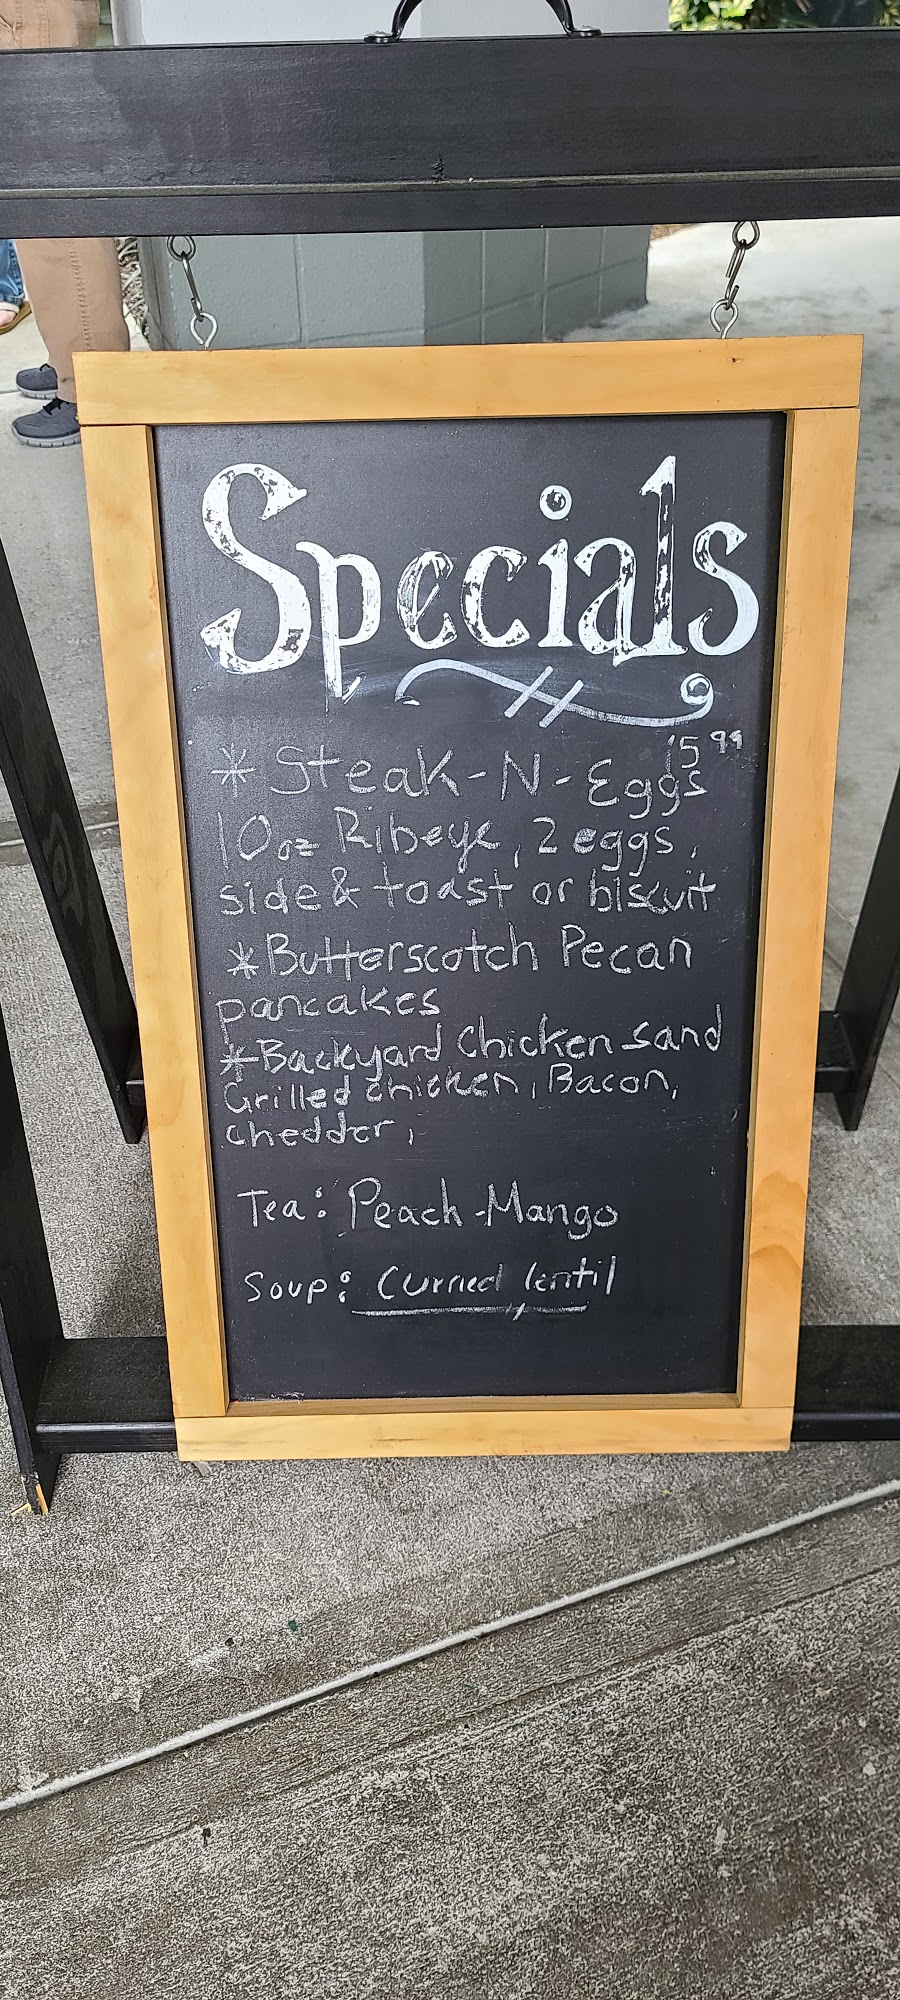 Specials
* Steak-N-Eggs 15 99
10oz Ribeye, 2 eggs,
side & toast or biscuit
*Butterscotch Pecan
pancakes
*Backyard Chicken sand
Grilled chicken, Bacon,
chedder,
Tea: Peach-Mango
Soup: Curried lentil